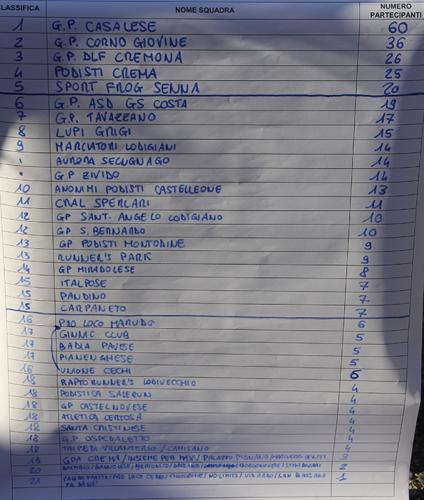 CLASSIFICA NOME SQUADRA NUMERO PARTECIPANTI
1 G.P. CASALESE 60
2 G.P. CORNO GIOVINE 36
3 G.P. DLF CREMONA 26
4 PODISTI CREMA 25
5 SPORT FROG SENNA 20
6 G.P. ASD GS COSTA 19
7 G.P. TAVAZZANO 17
8 LUPI GRIGI 15
9 MARCIATORI LODIGIANI 14
AURORA SECUGNAGO 14
GP ZIVIDO 14
10 ANONIMI PODISTI CASTELLEONE 13
11 CRAL SPERLARI 11
12 GP SANT. ANGELO LODIGIANO 10
12 GP S. BERNARDO 10
13 GP PODISTI MONTODINE 9
13 RUNNER'S PARK 9
14 GP MIRADOLESE 8
15 ITALPOSE 7
15 PANDINO 7
15 CARPANETO 7
16 PRO LOCO MARUDO 6
17 GINNIC CLUB 5
17 BADIA PAVESE 5
17 PIANENGHESE 5
16 UNIONE CECHI 6
18 RAPTORUNNER'S LODIVECCHIO 4
18 PODISTICA SALERUN 4
18 GP CASTELNOVESE 4
18 ATLETICA CERTOSA 4
18 SANTA CRISTINESE 4
18 G.P. OSPEDALETTO 4
18 CAMISANO 4
19 GTA CREMA / INSIEME PER MAX / PALAZZO PIGNANO 3
20 2
21 NO LIMITS 1